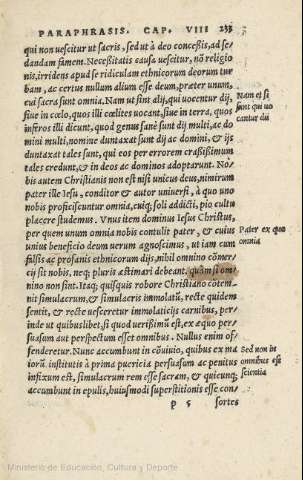 PARAPHRASIS. CAP. VIII 233
qui non uescitur ut sacris, sed ut à deo concessis, ad se/
dandam famem. Necessitatis causa uescitur, nō religio
nis, irridens apud se ridiculam ethnicorum deorum tur
bam, ac certius nullum alium esse deum, præter unum,
cui sacra sunt omnia. Nam ut sint alij, qui uocentur dij,
siue in cœlo, quos illi cœlites uocant, siue in terra, quos
inferos illi dicunt, quod genus sanè sunt dij multi, ac do
mini multi, nomine duntaxat sunt dij ac domini, & ijs
duntaxat tales sunt, qui eos per errorem crassissimum
tales credunt, & in deos ac dominos adoptarunt. No/
bis autem Christianis non est nisi unicus deus, nimirum
pater ille Iesu, conditor & autor uniuersi, à quo uno
nobis proficiscuntur omnia, cuiq; soli addicti, pio cultu
placere studemus. Vnus item dominus Iesus Christus,
per quem unum omnia nobis contulit pater, & cuius
unius beneficio deum uerum agnoscimus, ut iam cum
falsis ac profanis ethnicorum dijs, nihil omnino cōmer/
cij sit nobis, neq; pluris æstimari debeant. quàm si om/
nino non sint. Itaq; quisquis robore Christiano cōtem/
nit simulacrum, & simulacris immolatū, recte quidem
sentit, & recte uesceretur immolaticijs carnibus, per/
inde ut quibuslibet, si quod uerissimū est, ex æquo per/
suasum aut perspectum esset omnibus. Nullus enim of/
fenderetur. Nunc accumbunt in cōuiuio, quibus ex ma
iorū institutis à prima puericia persuasum ac penitus
infixum est, simulacrum rem esse sacram, & quicunq;
accumbunt in epulis, huiusmodi superstitionis esse con/
p 5 sortes
Nam et si
sunt qui uo
cantur dij
Pater ex quo
omnia
Sed non in
omnibus est
scientia
Ministerio de Educación, Cultura y Deporte